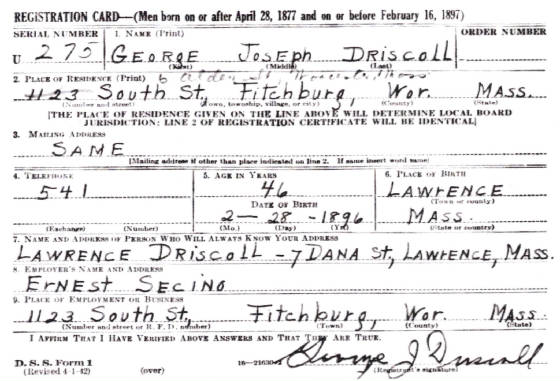 REGISTRATION CARD—(Men born on or after April 28, 1877 and on or before February 16, 1897)
SERIAL NUMBER 1. NAME (Print) ORDER NUMBER
U 275 GEORGE JOSEPH DRISCOLL
(First) (Middle) (Last)
2. PLACE OF RESIDENCE (Print) 6 Alden St, Worcester, Mass
1123 SOUTH ST, FITCHBURG, WOR. MASS.
(Number and street) (Town, township, village, or city) (County) (State)
[THE PLACE OF RESIDENCE GIVEN ON THE LINE ABOVE WILL DETERMINE LOCAL BOARD
JURISDICTION; LINE 2 OF REGISTRATION CERTIFICATE WILL BE IDENTICAL]
3. MAILING ADDRESS
SAME
[Mailing address if other than place indicated on line 2. If same insert word same]
4. TELEPHONE 5. AGE IN YEARS 6. PLACE OF BIRTH
541 46 LAWRENCE
DATE OF BIRTH (Town or county)
2-28-1896 MASS.
(Exchange) (Number) (Mo.) (Day) (Yr.) (State or country)
7. NAME AND ADDRESS OF PERSON WHO WILL ALWAYS KNOW YOUR ADDRESS
LAWRENCE DRISCOLL - 7 DANA ST, LAWRENCE, MASS.
8. EMPLOYER'S NAME AND ADDRESS
ERNEST SECINO
9. PLACE OF EMPLOYMENT OR BUSINESS
1123 SOUTH ST, FITCHBURG, WOR. MASS
(Number and street or R. F. D. number) (Town) (County) (State)
I AFFIRM THAT I HAVE VERIFIED ABOVE ANSWERS AND THAT THEY ARE TRUE.
D. S. S. Form 1 George J Driscoll
(Revised 4-1-42) (over) 16-21630-2 (Registrant's signature)